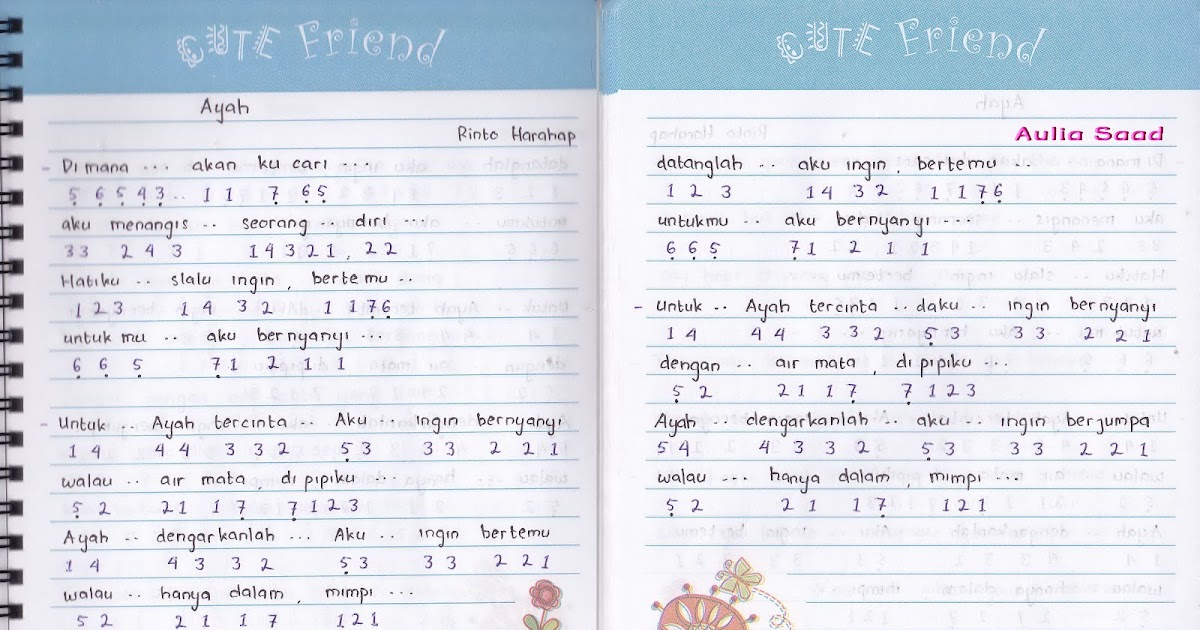 CUTE Friend
Ayah
Rinto Harahap
- Di mana ... akan ku cari ...
5̣ 6̣ 5̣ 4̣ 3̣ .. 1 1 7̣ 6̣ 5̣
aku menangis .. seorang .. diri ...
3 3 2 4 3 1 4 3 2 1 , 2 2
Hatiku .. slalu ingin , bertemu ..
1 2 3 1 4 3 2 1 1 7̣ 6̣
untuk mu .. aku bernyanyi ...
6̣ 6̣ 5̣ 7̣ 1 2 1 1
- Untuk .. Ayah tercinta .. Aku .. ingin bernyanyi
1 4 4 4 3 3 2 5̣ 3 3 3 2 2 1
walau .. air mata , di pipiku ...
5̣ 2 2 1 1 7̣ 7̣ 1 2 3
Ayah .. dengarkanlah ... Aku .. ingin bertemu
1 4 4 3 3 2 5̣ 3 3 3 2 2 1
walau .. hanya dalam , mimpi ...
5̣ 2 2 1 1 7̣ 1 2 1
CUTE Friend
Aulia Saad
datanglah .. aku ingin , bertemu ..
1 2 3 1 4 3 2 1 1 7̣ 6̣
untukmu .. aku bernyanyi ...
6̣ 6̣ 5̣ 7̣ 1 2 1 1
- Untuk .. Ayah tercinta .. daku .. ingin bernyanyi
1 4 4 4 3 3 2 5̣ 3 3 3 2 2 1
dengan .. air mata , di pipiku ...
5̣ 2 2 1 1 7̣ 7̣ 1 2 3
Ayah .. dengarkanlah .. aku .. ingin berjumpa
5 4 4 3 3 2 5̣ 3 3 3 2 2 1
walau ... hanya dalam , mimpi ...
5̣ 2 2 1 1 7̣ 1 2 1